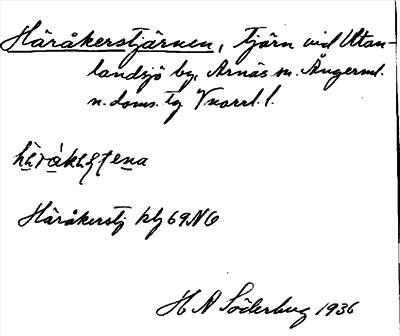 Häråkerstjärnen, tjärn vid Utan-
landsjö by, Arnäs sn. Ångerml.
n. doms. tg Vnorrl. l.
Häråkerstj kbl 69 NO
H A Söderberg 1936